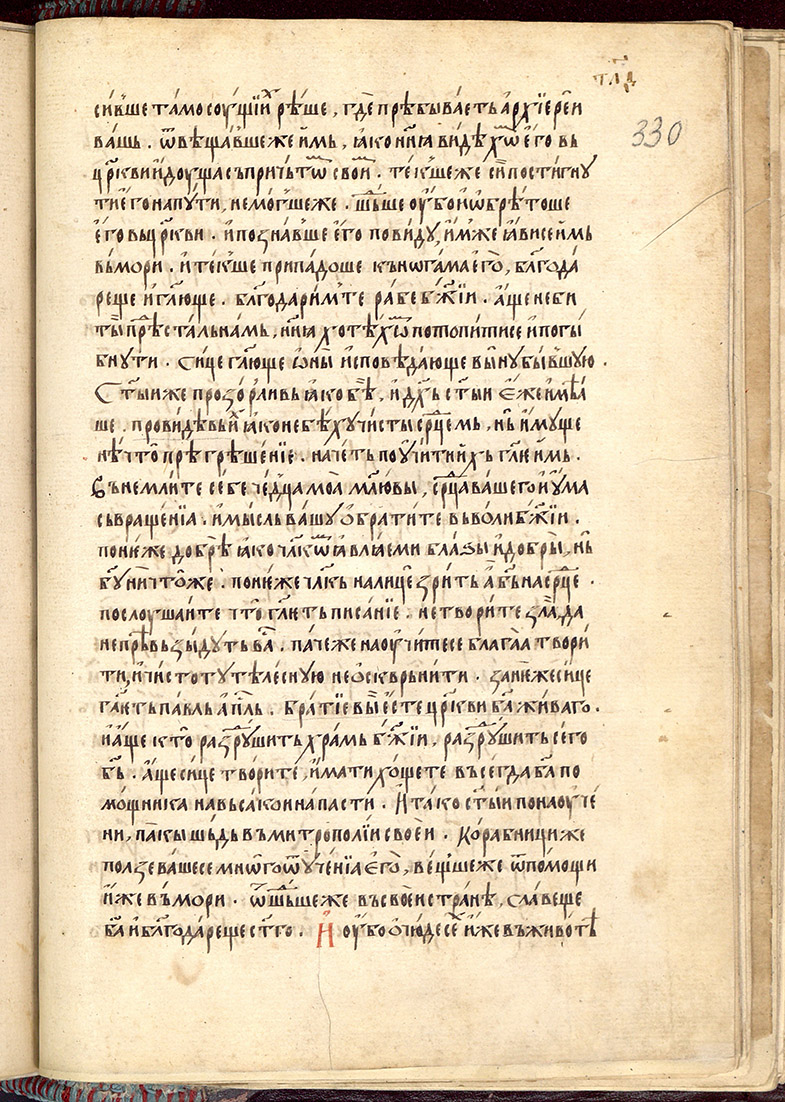 тл҃д
330
си́вше та́мо соу́щїи рѣ́ше , гдѐ прѣбыва́еть а҆рхїере́и
вашь . ѿвѣща́вше же и҆́мь , ꙗ҆́ко нн҃ꙗ видѣ́хѡм е҆го̀ вь
цр҃кви и҆дꙋща сь при́чьтѡм свои́м . те́кꙋше же сїѝ постигнꙋ
ти е҆го на пꙋтѝ , не мо́гꙋше же . шьⷣше ѹ҆́бо и҆ ѡ҆брѣ́тоше
е҆го вь цр҃кви . и҆ позна́вше е҆го по ви́дꙋ , и҆́мже ꙗ҆ви се и҆́мь
вь мо́ри . и҆ те́кꙋше припа́доше къ нога́ма е҆го̀ , бл҃года́
реще и҆ гл҃юще . бл҃года́рим те ра́бе бж҃їи . а҆́ще не би
ты̀ прѣⷣста́ль на́мь , нн҃ꙗ хотѣ́хѡм потопи́ти се и҆ поги́
бнꙋти . Си́це гл҃юще ѡ҆ни́ и҆сповѣ́дающе вы́нꙋ бы́вшꙋю .
Ст҃ы́и же прозо́рливь ꙗ҆́ко бѣ̀ , и҆ дх҃ь ст҃ы́и е҆́же и҆мѣ́ꙗ
ше . прови́дѣвь и҆́х ꙗ҆́ко не бѣ́хꙋ чи́сты срⷣцемь , нь и҆мꙋще
нѣ́что прѣгрѣше́нїе . наче́ть поꙋчи́ти и҆́хь гл҃ѥ и҆́мь .
Вънемли́те себѐ че́дца моа̀ мл҃ю вы̀ , срⷣца ва́шего и҆ ꙋ҆ма
съвраще́нїа . и҆ мысль ва́шꙋ ѻ҆брати́те вь во́ли бж҃їи .
поне́же до́брѣ ꙗ҆́ко чл҃кѡм ꙗ҆вла́еми бл҃зы и҆ до́бры , нь
бꙋ҃ ничто́же . поне́же чл҃кь на лицѐ зри́ть а҆ бь҃ на срⷣце .
послоу́шаите что̀ гл҃ѥть писа́нїе . не твори́те зла̀ , да
не прѣвьзы́дꙋть ва́с . па́че же наоучи́те се блага́а твори́
ти , и҆ чистотꙋ тѣле́снꙋю не ѻ҆скврьни́ти . зане́же си́це
гл҃ѥть па́вль а҆пⷭ҇ль . Бра́тїе вы̀ е҆сте́ цр҃кви ба҃ жива́го .
и҆ а҆́ще кто̀ разⷣрꙋши́ть хра́мь бж҃їи , разⷣрꙋши́ть се́го
бь҃ . а҆́ще си́це твори́те , и҆мати хо́щете въсегда ба҃ по
мо́щника на вьса́кои напа́сти . И҆ та́ко ст҃ы́и по наоуче́
ни , па́кы шьⷣдь въ митропо́лїи свое́и . Кора́бници же
по́лзевавше се мно́го ѿ оу́че́нїа е҆го̀ , ве́щꙋше же ѿ по́мощи
и҆́же въ мо́ри . ѿшьⷣше же въ свое́и стра́нѣ , сла́веще
ба҃ и҆ бл҃года́реще ст҃го . И҆ оу́бо чю́десе́х и҆́же въ живо́тѣ